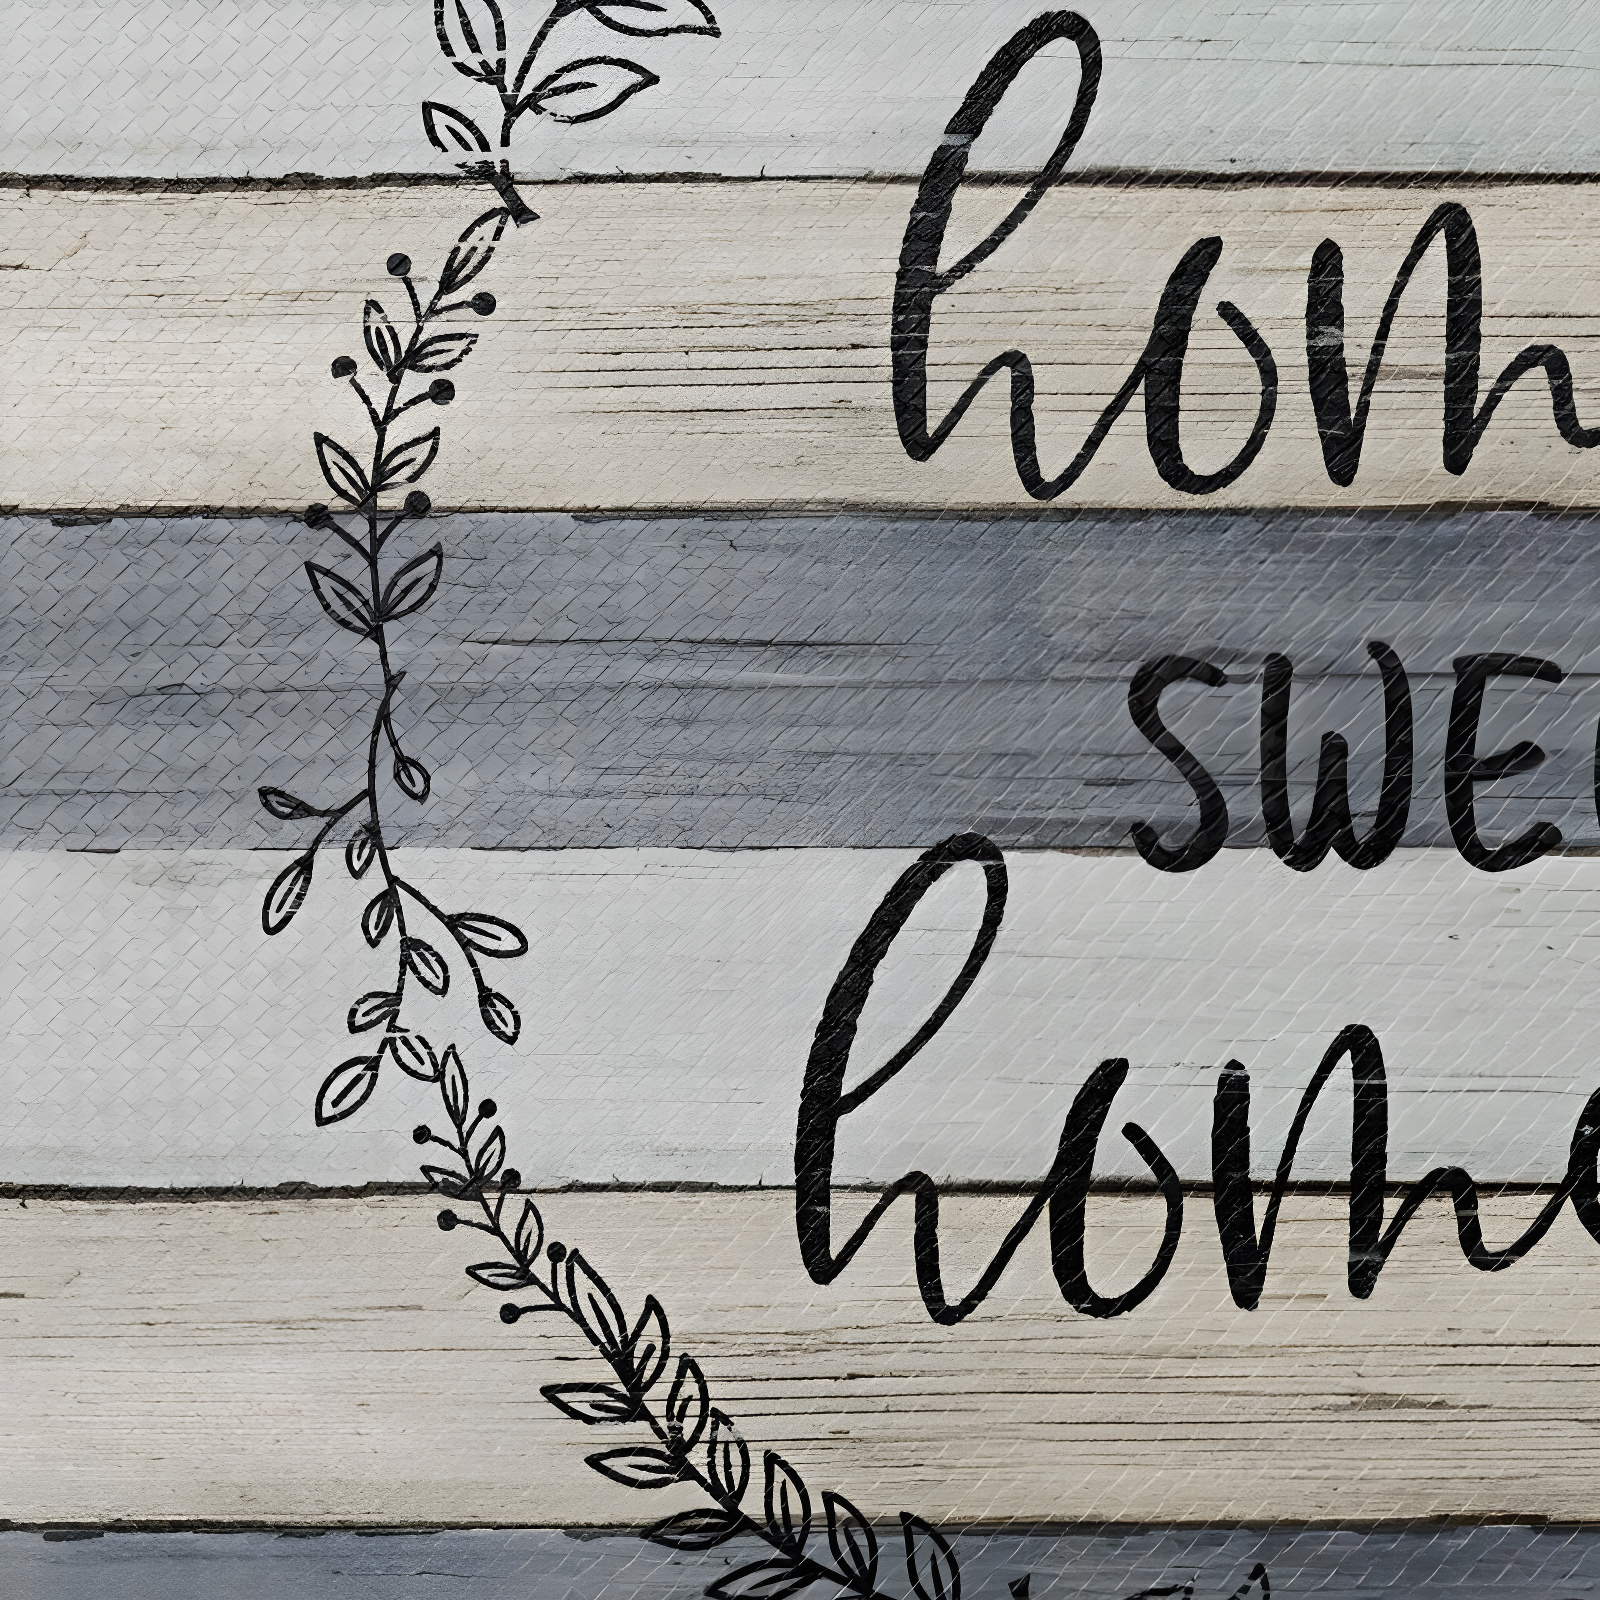 hom
SWE
home